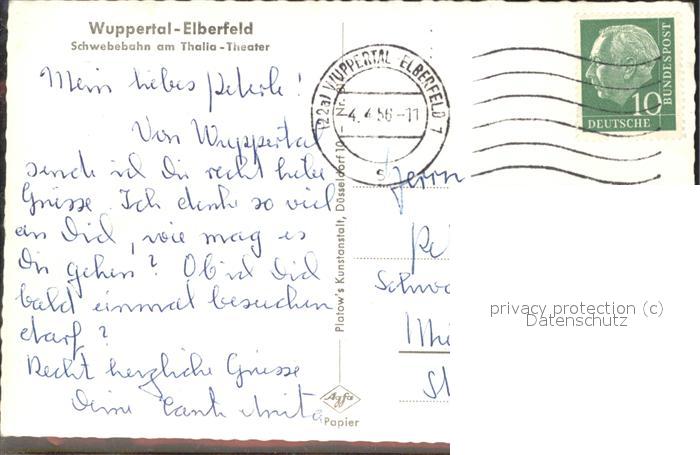 Wuppertal-Elberfeld
Schwebebahn am Thalia-Theater
Mein liebes Peterle!
Von Wuppertal
sende ich Dir recht liebe
Grüsse. Ich denke so viel
an Dich, wie mag es
Dir gehen? Ob ich Dich
bald einmal besuchen
darf?
Recht herzliche Grüsse
Deine Tante Anita
Nr.
Platow's Kunstanstalt, Düsseldorf 10
Agfa
Papier
(22a) WUPPERTAL-ELBERFELD 1
-4.4.56-11
s
10
DEUTSCHE
BUNDESPOST
Herrn
Pe
Schwa
St
privacy protection (c)
Datenschutz